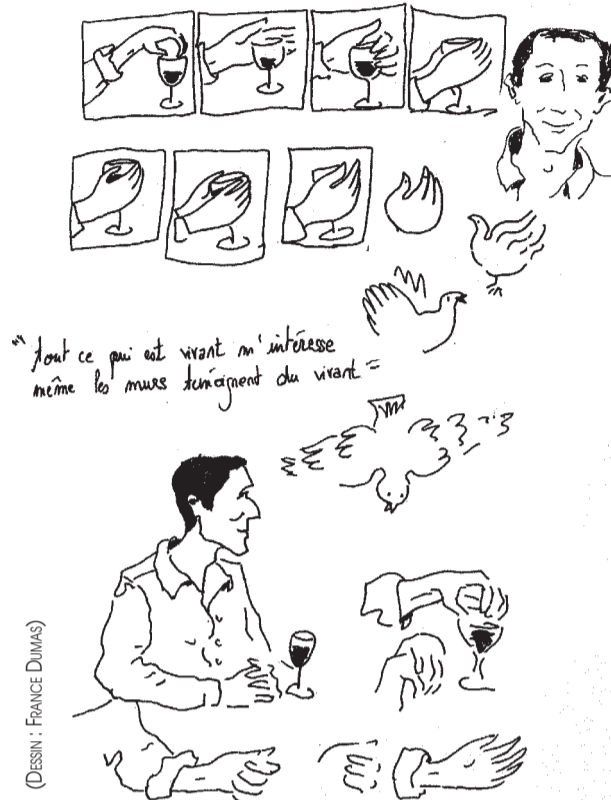 " tout ce qui est vivant m'intéresse
même les murs témoignent du vivant "
(DESSIN : FRANCE DUMAS)